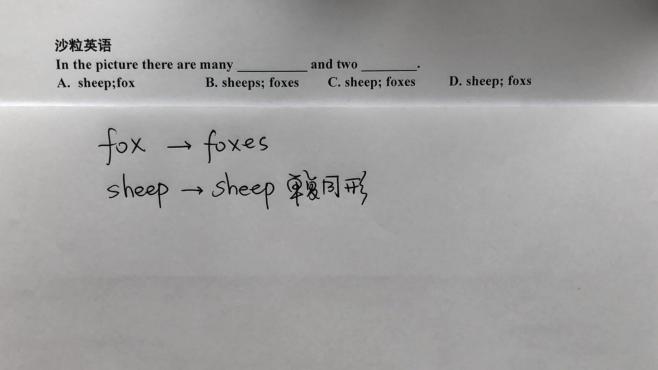 沙粒英语
In the picture there are many __________ and two ________.
A. sheep;fox B. sheeps; foxes C. sheep; foxes D. sheep; foxs
fox → foxes
sheep → sheep 同形